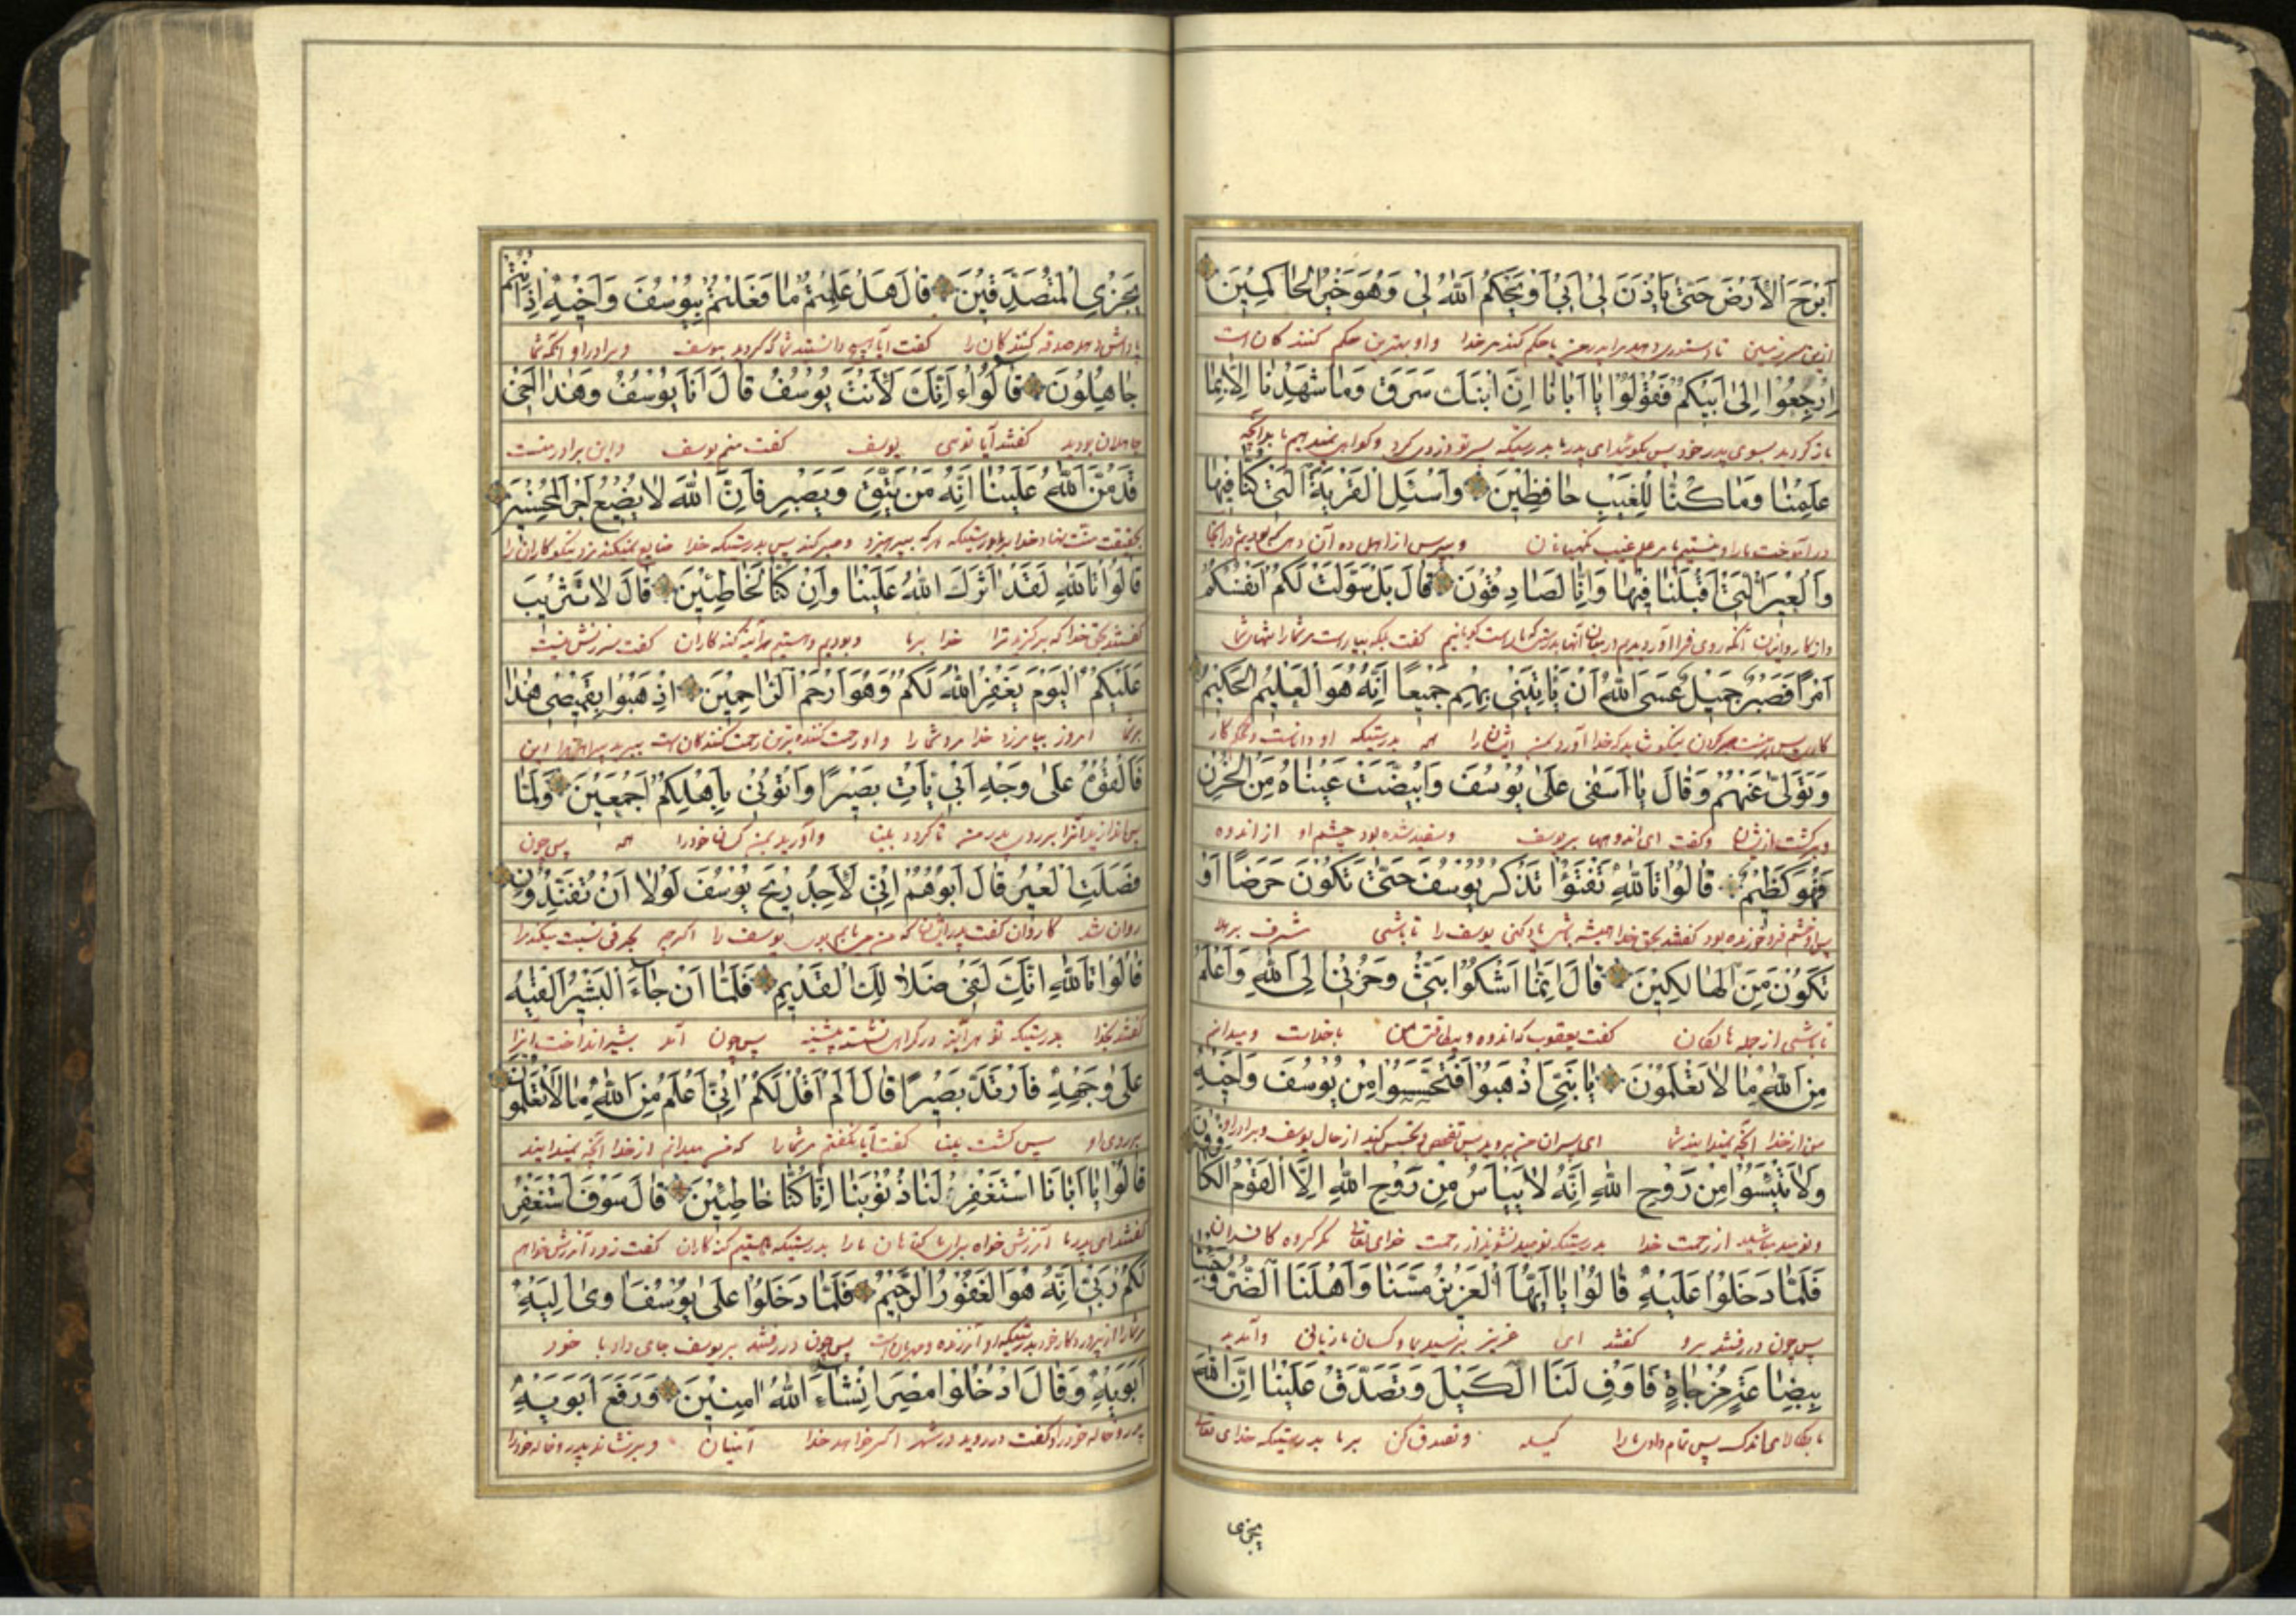 اَبْرَحَ الْاَرْضَ حَتّٰى يَاْذَنَ لٖى اَبٖى اَوْ يَحْكُمَ اللّٰهُ لٖى وَهُوَ خَيْرُ الْحَاكِمٖينَ
ازین سرزمین تا دستوری دهد مرا پدر من یا حکم کند مر خدا و او بهترین حکم کنندگان است
اِرْجِعُوا اِلٰى اَبٖيكُمْ فَقُولُوا يَا اَبَانَا اِنَّ ابْنَكَ سَرَقَ وَمَا شَهِدْنَا اِلَّا بِمَا
باز کردید بسوی پدر خود پس بکوئید ای پدر ما بدرستیکه پسر تو دزدی کرد و کواهی نمیدهیم ما بدانچه
عَلِمْنَا وَمَا كُنَّا لِلْغَيْبِ حَافِظٖينَ وَاسْئَلِ الْقَرْيَةَ الَّتٖى كُنَّا فٖيهَا
غیب نکهبانان و بپرس از اهل ده آن ده که بودیم در آنجا
وَالْعٖيرَ الَّتٖى اَقْبَلْنَا فٖيهَا وَاِنَّا لَصَادِقُونَ قَالَ بَلْ سَوَّلَتْ لَكُمْ اَنْفُسُكُمْ
و از کاروانیان آنکه روی فرا آوردیم در میان آنها بدرستیکه ما راست کویانیم کفت بلکه بیاراست مر شما را نفسهای شما
اَمْرًا فَصَبْرٌ جَمٖيلٌ عَسَى اللّٰهُ اَنْ يَاْتِيَنٖى بِهِمْ جَمٖيعًا اِنَّهُ هُوَ الْعَلٖيمُ الْحَكٖيمُ
نیکو شاید که خدا آورد بمن ایشان را همه بدرستیکه او داناست
وَتَوَلّٰى عَنْهُمْ وَقَالَ يَا اَسَفٰى عَلٰى يُوسُفَ وَابْيَضَّتْ عَيْنَاهُ مِنَ الْحُزْنِ
و برکشت از ایشان و کفت ای اندوها بر یوسف و سفید شده بود چشم او از اندوه
فَهُوَ كَظٖيمٌ قَالُوا تَاللّٰهِ تَفْتَؤُا تَذْكُرُ يُوسُفَ حَتّٰى تَكُونَ حَرَضًا اَوْ
پس او خشم فرو خورنده بود کفتند بحق خدا همیشه باشی یاد کنی یوسف را تا باشی مشرف بر هلا
تَكُونَ مِنَ الْهَالِكٖينَ قَالَ اِنَّمَا اَشْكُوا بَثّٖى وَحُزْنٖى اِلَى اللّٰهِ وَاَعْلَمُ
تا باشی از جمله هالکان کفت یعقوب که اندوه من با خداست و میدانم
مِنَ اللّٰهِ مَا لَا تَعْلَمُونَ يَا بَنِىَّ اذْهَبُوا فَتَحَسَّسُوا مِنْ يُوسُفَ وَاَخٖيهِ
من از خدا آنچه نمیدانید شما ای پسران من بروید پس تفحص و تجسس کنید از حال یوسف و برادر او
وَلَا تَيْئَسُوا مِنْ رَوْحِ اللّٰهِ اِنَّهُ لَا يَيْاَسُ مِنْ رَوْحِ اللّٰهِ اِلَّا الْقَوْمُ الْكَافِرُونَ
و نومید مباشید از رحمت خدا بدرستیکه نومید نشوند از رحمت خدای تعالی مکر کروه کافران
فَلَمَّا دَخَلُوا عَلَيْهِ قَالُوا يَا اَيُّهَا الْعَزٖيزُ مَسَّنَا وَاَهْلَنَا الضُّرُّ وَجِئْنَا
پس چون در رفتند برو کفتند ای عزیز برسید بما و کسان ما زیانی و آمدیم
بِبِضَاعَةٍ مُزْجَاةٍ فَاَوْفِ لَنَا الْكَيْلَ وَتَصَدَّقْ عَلَيْنَا اِنَّ اللّٰهَ
پس تمام کیله و تصدق کن بر ما بدرستیکه خدای تعالی
یجزی
يَجْزِى الْمُتَصَدِّقٖينَ قَالَ هَلْ عَلِمْتُمْ مَا فَعَلْتُمْ بِيُوسُفَ وَاَخٖيهِ اِذْ اَنْتُمْ
پاداش دهد صدقه کنندکان را کفت آیا دانستید شما که کردید بیوسف و برادر او آنکه شما
جَاهِلُونَ قَالُوا ءَاِنَّكَ لَاَنْتَ يُوسُفُ قَالَ اَنَا يُوسُفُ وَهٰذَا اَخٖى
جاهلان بودید کفتند آیا توئی یوسف کفت منم یوسف و این برادر منست
قَدْ مَنَّ اللّٰهُ عَلَيْنَا اِنَّهُ مَنْ يَتَّقِ وَيَصْبِرْ فَاِنَّ اللّٰهَ لَا يُضٖيعُ اَجْرَ الْمُحْسِنٖينَ
بحقیقت منت نهاد خدا بر ما بدرستیکه هر که بپرهیزد و صبر کند پس بدرستیکه خدا ضایع نمیکند مزد نیکوکاران را
قَالُوا تَاللّٰهِ لَقَدْ اٰثَرَكَ اللّٰهُ عَلَيْنَا وَاِنْ كُنَّا لَخَاطِئٖينَ قَالَ لَا تَثْرٖيبَ
کفتند بحق خدا که برکزید ترا خدا بر ما و بودیم هرآینه کنه کاران کفت سرزنش نیست
عَلَيْكُمُ الْيَوْمَ يَغْفِرُ اللّٰهُ لَكُمْ وَهُوَ اَرْحَمُ الرَّاحِمٖينَ اِذْهَبُوا بِقَمٖيصٖى هٰذَا
بر شما امروز بیامرزد خدا مر شما را و او رحمت کننده ترین رحمت کنندکان است ببرید پیراهن مرا این
فَاَلْقُوهُ عَلٰى وَجْهِ اَبٖى يَاْتِ بَصٖيرًا وَاْتُونٖى بِاَهْلِكُمْ اَجْمَعٖينَ وَلَمَّا
پس اندازید آنرا بر روی پدر من تا کردد بینا و آورید بمن کسان خود را همه پس چون
فَصَلَتِ الْعٖيرُ قَالَ اَبُوهُمْ اِنّٖى لَاَجِدُ رٖيحَ يُوسُفَ لَوْلَا اَنْ تُفَنِّدُونِ
روان شد کاروان کفت پدر ایشان که من می یابم بوی یوسف را اکرچه بخرفی نسبت میکند مرا
قَالُوا تَاللّٰهِ اِنَّكَ لَفٖى ضَلَالِكَ الْقَدٖيمِ فَلَمَّا اَنْ جَاءَ الْبَشٖيرُ اَلْقٰيهُ
کفتند بخدا بدرستیکه تو هرآینه در کمراهی پس چون آمد بشیر انداخت آنرا
عَلٰى وَجْهِهِ فَارْتَدَّ بَصٖيرًا قَالَ اَلَمْ اَقُلْ لَكُمْ اِنّٖى اَعْلَمُ مِنَ اللّٰهِ مَا لَا تَعْلَمُونَ
بر روی او پس کشت بینا کفت آیا نکفتم مر شما را که من میدانم از خدا آنچه نمیدانید
قَالُوا يَا اَبَانَا اسْتَغْفِرْ لَنَا ذُنُوبَنَا اِنَّا كُنَّا خَاطِئٖينَ قَالَ سَوْفَ اَسْتَغْفِرُ
کفتند ای پدر ما آمرزش خواه برای ما کناهان ما را بدرستیکه ما هستیم کنه کاران کفت زود آمرزش خواهم
لَكُمْ رَبّٖى اِنَّهُ هُوَ الْغَفُورُ الرَّحٖيمُ فَلَمَّا دَخَلُوا عَلٰى يُوسُفَ اٰوٰى اِلَيْهِ
مر شما را از پروردکار خود بدرستیکه او آمرزنده و مهربانست پس چون در رفتند بر یوسف جای داد با خود
اَبَوَيْهِ وَقَالَ ادْخُلُوا مِصْرَ اِنْ شَاءَ اللّٰهُ اٰمِنٖينَ وَرَفَعَ اَبَوَيْهِ
پدر و خاله خود را و کفت در روید در شهر اکر خواهد خدا و برنشاند پدر و خاله خود را